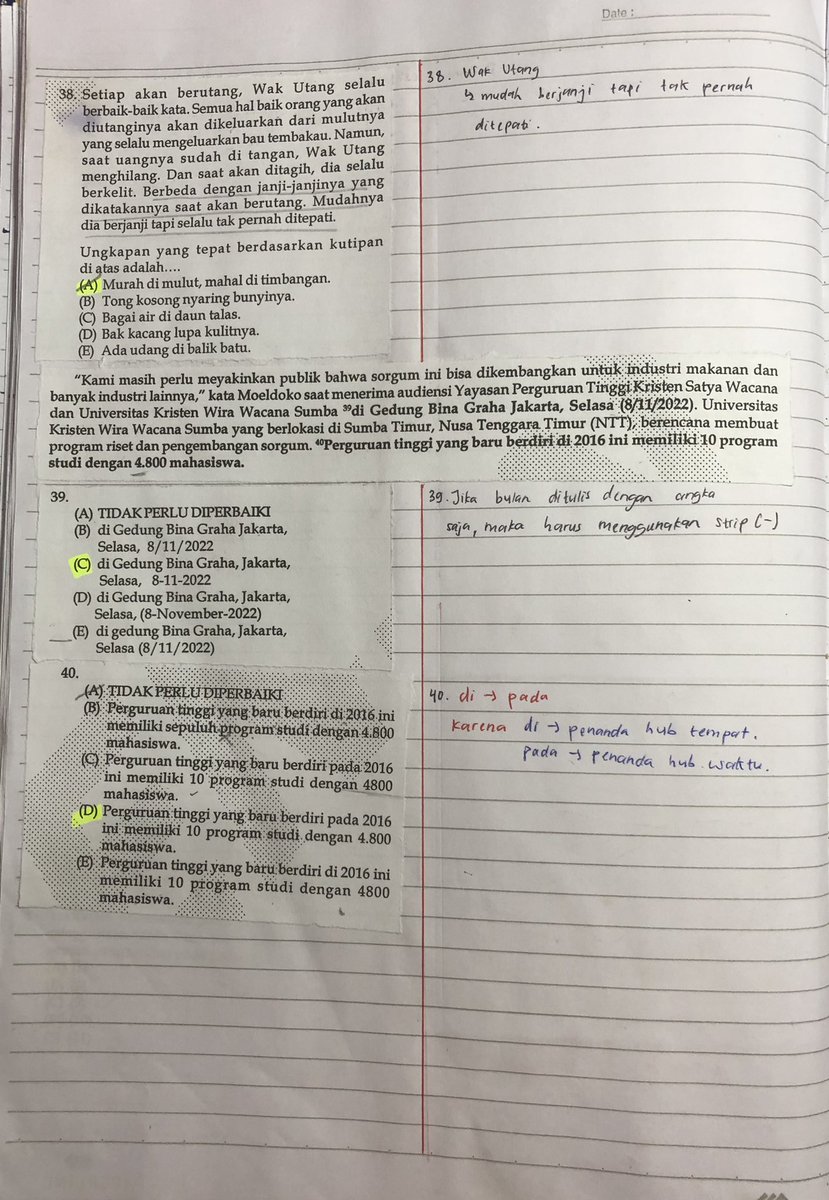 Date :
38. Setiap akan berutang, Wak Utang selalu
berbaik-baik kata. Semua hal baik orang yang akan
diutanginya akan dikeluarkan dari mulutnya
yang selalu mengeluarkan bau tembakau. Namun,
saat uangnya sudah di tangan, Wak Utang
menghilang. Dan saat akan ditagih, dia selalu
berkelit. Berbeda dengan janji-janjinya yang
dikatakannya saat akan berutang. Mudahnya
dia berjanji tapi selalu tak pernah ditepati.
Ungkapan yang tepat berdasarkan kutipan
di atas adalah....
(A) Murah di mulut, mahal di timbangan.
(B) Tong kosong nyaring bunyinya.
(C) Bagai air di daun talas.
(D) Bak kacang lupa kulitnya.
(E) Ada udang di balik batu.
38. Wak Utang
↳ mudah berjanji tapi tak pernah
ditepati.
"Kami masih perlu meyakinkan publik bahwa sorgum ini bisa dikembangkan untuk industri makanan dan
banyak industri lainnya," kata Moeldoko saat menerima audiensi Yayasan Perguruan Tinggi Kristen Satya Wacana
dan Universitas Kristen Wira Wacana Sumba ³⁹di Gedung Bina Graha Jakarta, Selasa (8/11/2022). Universitas
Kristen Wira Wacana Sumba yang berlokasi di Sumba Timur, Nusa Tenggara Timur (NTT), berencana membuat
program riset dan pengembangan sorgum. ⁴⁰Perguruan tinggi yang baru berdiri di 2016 ini memiliki 10 program
studi dengan 4.800 mahasiswa.
39.
(A) TIDAK PERLU DIPERBAIKI
(B) di Gedung Bina Graha Jakarta,
Selasa, 8/11/2022
(C) di Gedung Bina Graha, Jakarta,
Selasa, 8-11-2022
(D) di Gedung Bina Graha, Jakarta,
Selasa, (8-November-2022)
(E) di gedung Bina Graha, Jakarta,
Selasa (8/11/2022)
39. Jika bulan ditulis dengan angka
saja, maka harus menggunakan strip (-)
40.
(A) TIDAK PERLU DIPERBAIKI
(B) Perguruan tinggi yang baru berdiri di 2016 ini
memiliki sepuluh program studi dengan 4.800
mahasiswa.
(C) Perguruan tinggi yang baru berdiri pada 2016
ini memiliki 10 program studi dengan 4800
mahasiswa.
(D) Perguruan tinggi yang baru berdiri pada 2016
ini memiliki 10 program studi dengan 4.800
mahasiswa.
(E) Perguruan tinggi yang baru berdiri di 2016 ini
memiliki 10 program studi dengan 4800
mahasiswa.
40. di → pada
karena di → penanda hub tempat.
pada → penanda hub. waktu.